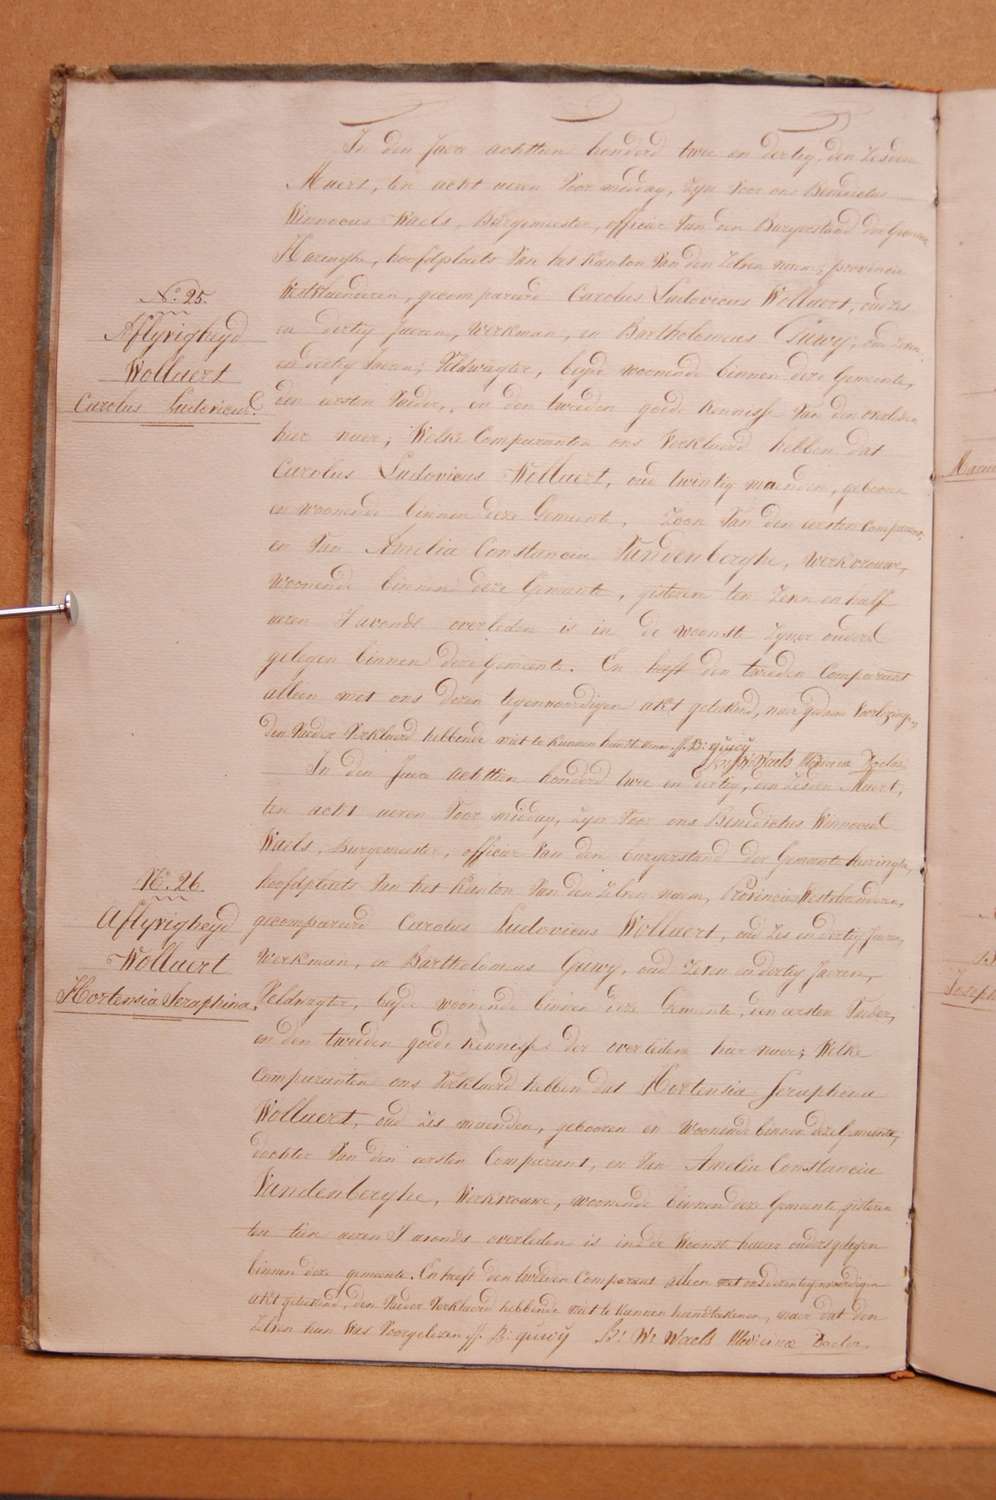 In den Jaere achttien honderd twee en dertig, den zesden
Maert, ten acht ueren voor middag, zijn voor ons Benedictus
Winnocus Waels, Burgemeester, officier van den Burgerstand der Gemeente
Haringhe, hoofdplaets van het Kanton van den zelven naem, provincie
Westvlaenderen, gecompareerd Carolus Ludovicus Wollaert, oud zes
en dertig Jaeren, Werkman, en Bartholomeus Guwy, oud zeven
en dertig Jaeren, Veldwagter, beyde woonende binnen deze Gemeente,
den eersten Vader, en den tweeden goede kennisse van den overleden
hier naer; Welke Comparanten ons verklaerd hebben dat
Carolus Ludovicus Wollaert, oud twintig maenden, gebooren
en woonende binnen deze Gemeente, Zoon van den eersten Comparant,
en van Amelia Constancia Vandenberghe, Werkvrouwe,
woonende binnen deze Gemeente, gisteren ten zeven en half
ueren s'avonds overleden is in de woonst zijner ouders
gelegen binnen deze Gemeente. En heeft den tweeden Comparant
alleen met ons dezen tegenwoordigen akt geteekend, naer gedaene voorlezinge,
den Vader verklaerd hebbende niet te kunnen handteekenen ff. B: guwy
Bt. Wt. Waels Medicinae Doctor
N.º 25.
Aflyvigheyd
Wollaert
Carolus Ludovicus.
In den Jaere achttien honderd twee en dertig, den zesden Maert,
ten acht ueren voor middag, zijn voor ons Benedictus Winnocus
Waels, Burgemeester, officier van den burgerstand der Gemeente haringhe,
hoofdplaets van het Kanton van den zelven naem, Provincie Westvlaenderen,
gecompareerd Carolus Ludovicus Wollaert, oud zes en dertig Jaeren,
Werkman, en Bartholomeus Guwy, oud zeven en dertig Jaeren,
Veldwagter, beyde woonende binnen deze Gemeente, den eersten Vader,
en den tweeden goede kennisse der overledene hier naer; Welke
Comparanten ons verklaerd hebben dat Hortensia Seraphina
Wollaert, oud zes maenden, gebooren en woonende binnen deze Gemeente,
dochter van den eersten Comparant, en van Amelia Constancia
Vandenberghe, Werkvrouwe, woonende binnen deze Gemeente, gisteren
ten tien ueren s'avonds overleden is in de woonst haerer ouders gelegen
binnen deze gemeente. En heeft den tweeden Comparant alleen met ons dezen tegenwoordigen
akt geteekend, den Vader verklaerd hebbende niet te kunnen handteekenen, naer dat den
zelven hun was voorgelezen ff. B: guwy Bt. Wt. Waels Medicinae Doctor.
N.º 26.
Aflyvigheyd
Wollaert
Hortensia Seraphina.